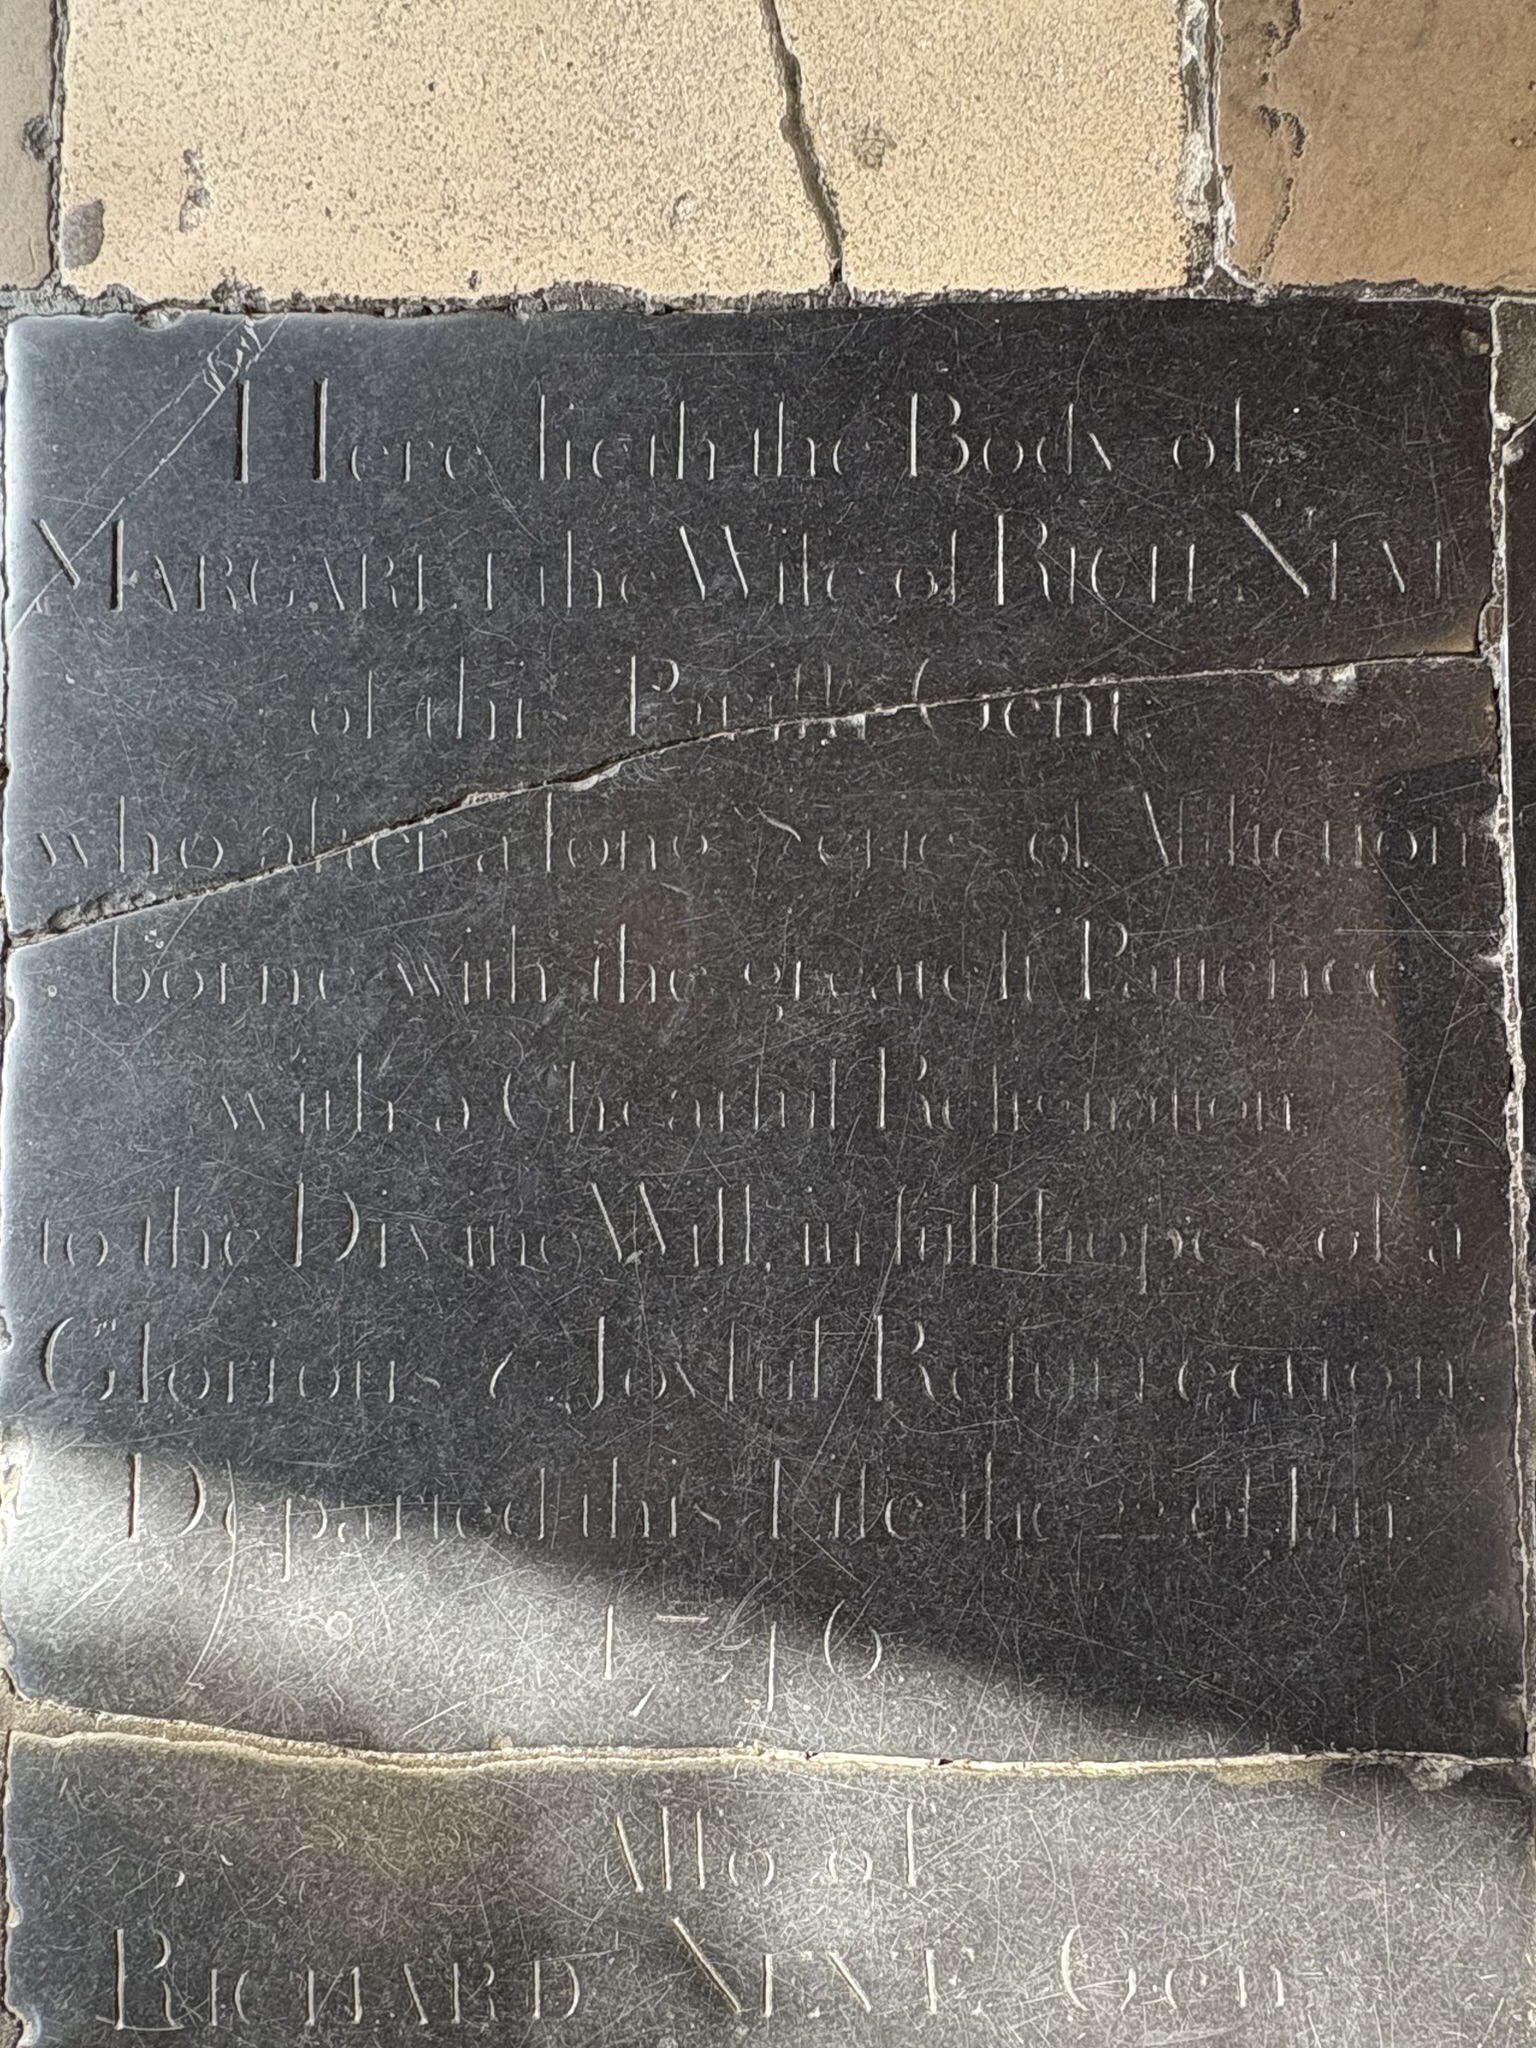 Here lieth the Body of
MARGARET the Wife of RICH NEVE
of this Parish Gent
who after a long Series of Affliction
borne with the greatest Patience
with a Chearful Resignation
to the Divine Will, in full hopes of a
Glorious & Joyful Resurrection
Departed this Life the 22 of Jan
Also of
RICHARD NEVE Gent